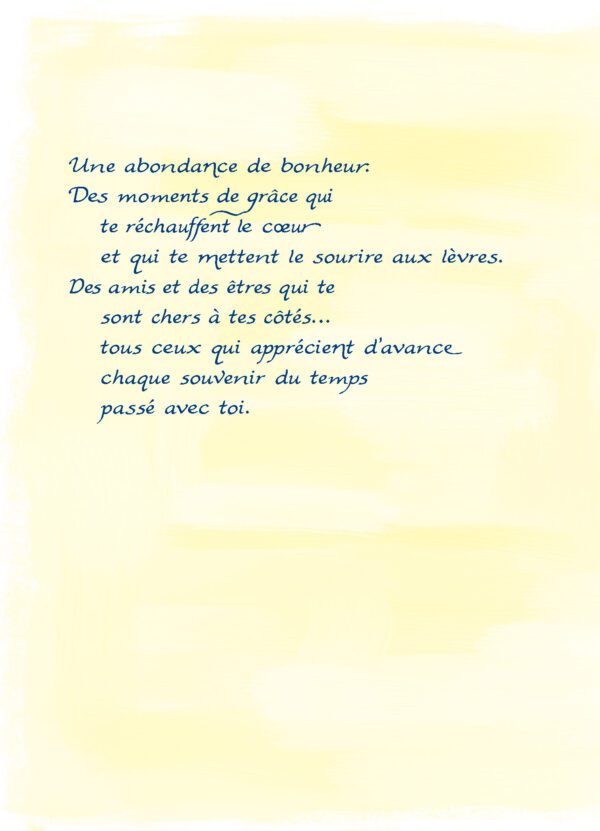 Une abondance de bonheur:
Des moments de grâce qui
te réchauffent le cœur
et qui te mettent le sourire aux lèvres.
Des amis et des êtres qui te
sont chers à tes côtés...
tous ceux qui apprécient d'avance
chaque souvenir du temps
passé avec toi.